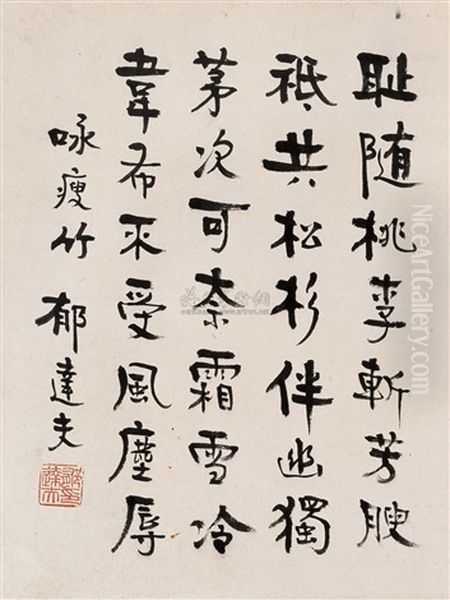 耻随桃李斬芳腴
祇共松杉伴幽獨
茅次可奈霜雪冷
韋布不受風塵辱
咏瘦竹 郁達夫
NiceArtGallery.com